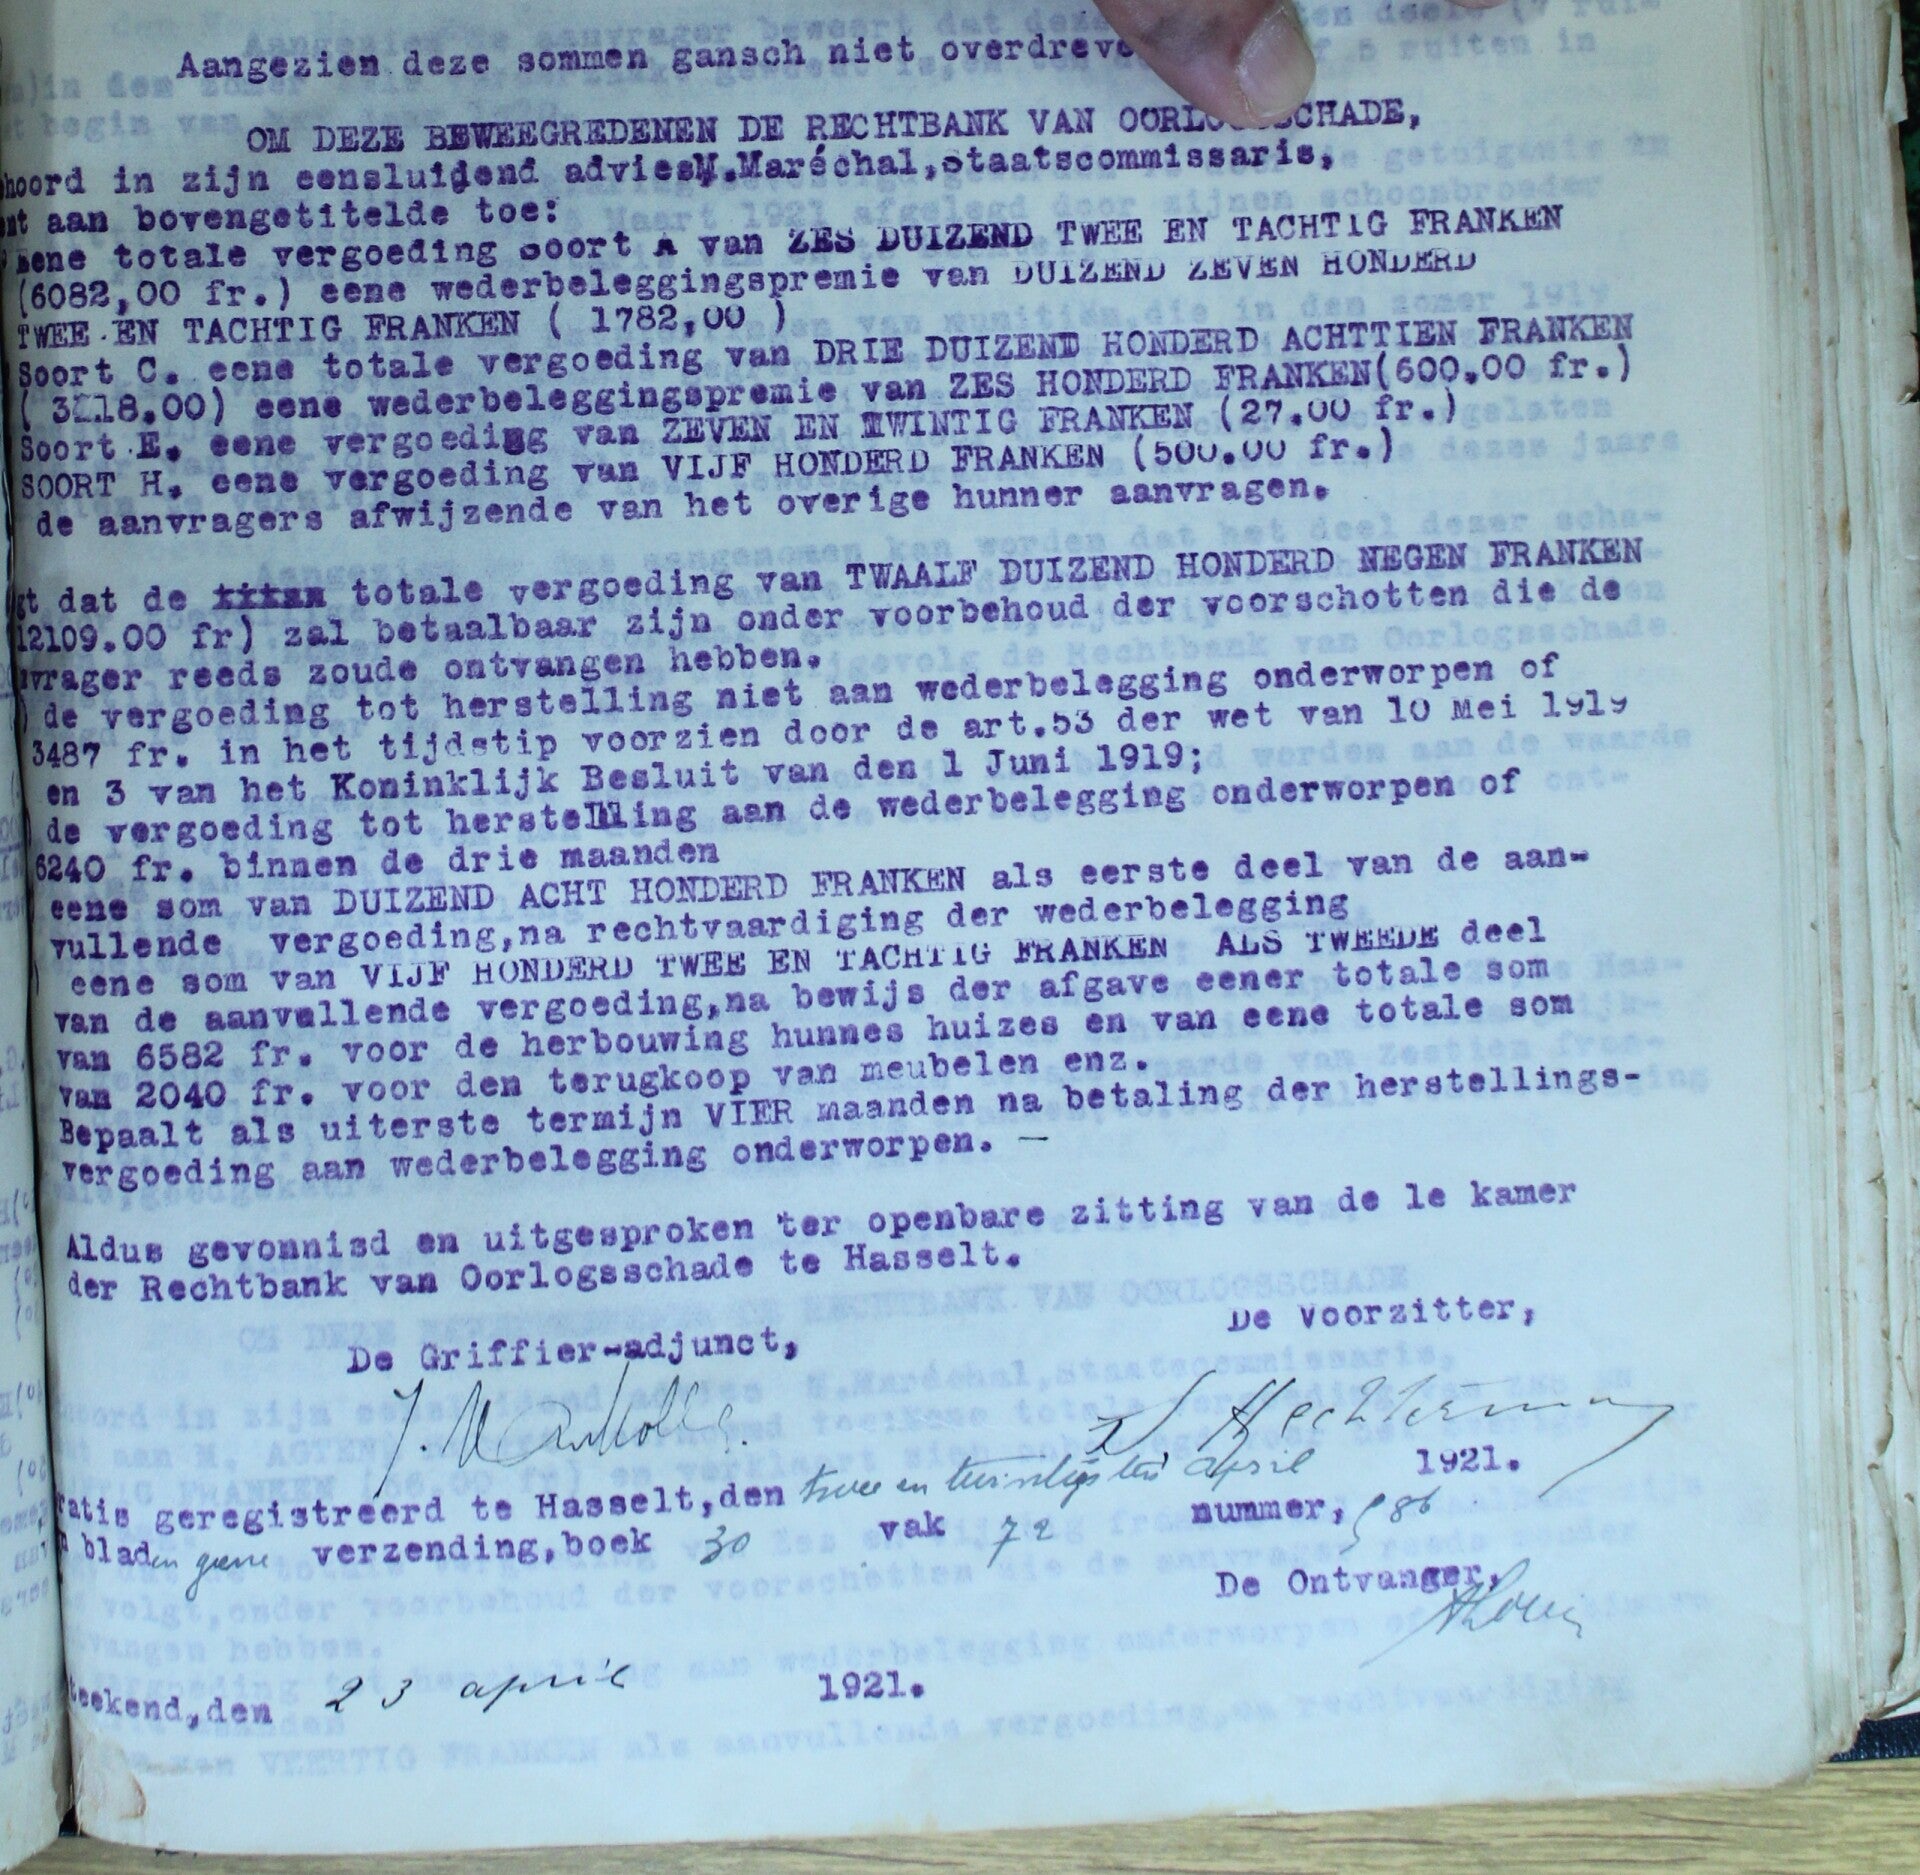 Aangezien deze sommen gansch niet overdreve
OM DEZE BEWEEGREDENEN DE RECHTBANK VAN OORLOGSSCHADE,
hoord in zijn eensluidend advies M.Maréchal,staatscommissaris,
nt aan bovengetitelde toe:
eene totale vergoeding soort A van ZES DUIZEND TWEE EN TACHTIG FRANKEN
(6082,00 fr.) eene wederbeleggingspremie van DUIZEND ZEVEN HONDERD
TWEE EN TACHTIG FRANKEN ( 1782,00 )
Soort C. eene totale vergoeding van DRIE DUIZEND HONDERD ACHTTIEN FRANKEN
( 3118.00) eene wederbeleggingspremie van ZES HONDERD FRANKEN(600.00 fr.)
Soort E. eene vergoeding van ZEVEN EN TWINTIG FRANKEN (27.00 fr.)
SOORT H. eene vergoeding van VIJF HONDERD FRANKEN (500.00 fr.)
de aanvragers afwijzende van het overige hunner aanvragen.
gt dat de totale vergoeding van TWAALF DUIZEND HONDERD NEGEN FRANKEN
12109.00 fr) zal betaalbaar zijn onder voorbehoud der voorschotten die de
vrager reeds zoude ontvangen hebben.
) de vergoeding tot herstelling niet aan wederbelegging onderworpen of
3487 fr. in het tijdstip voorzien door de art.53 der wet van 10 Mei 1919
en 3 van het Koninklijk Besluit van den 1 Juni 1919;
) de vergoeding tot herstelling aan de wederbelegging onderworpen of
6240 fr. binnen de drie maanden
eene som van DUIZEND ACHT HONDERD FRANKEN als eerste deel van de aan-
vullende vergoeding,na rechtvaardiging der wederbelegging
) eene som van VIJF HONDERD TWEE EN TACHTIG FRANKEN ALS TWEEDE deel
van de aanvullende vergoeding,na bewijs der afgave eener totale som
van 6582 fr. voor de herbouwing hunnes huizes en van eene totale som
van 2040 fr. voor den terugkoop van meubelen enz.
Bepaalt als uiterste termijn VIER maanden na betaling der herstellings-
vergoeding aan wederbelegging onderworpen. —
Aldus gevonnisd en uitgesproken ter openbare zitting van de 1e kamer
der Rechtbank van Oorlogsschade te Hasselt.
De Voorzitter,
De Griffier-adjunct,
ratis geregistreerd te Hasselt,den twee en twintigsten april 1921.
n bladen geene verzending,boek 30 vak 72 nummer, 586
De Ontvanger,
teekend,den 23 april 1921.